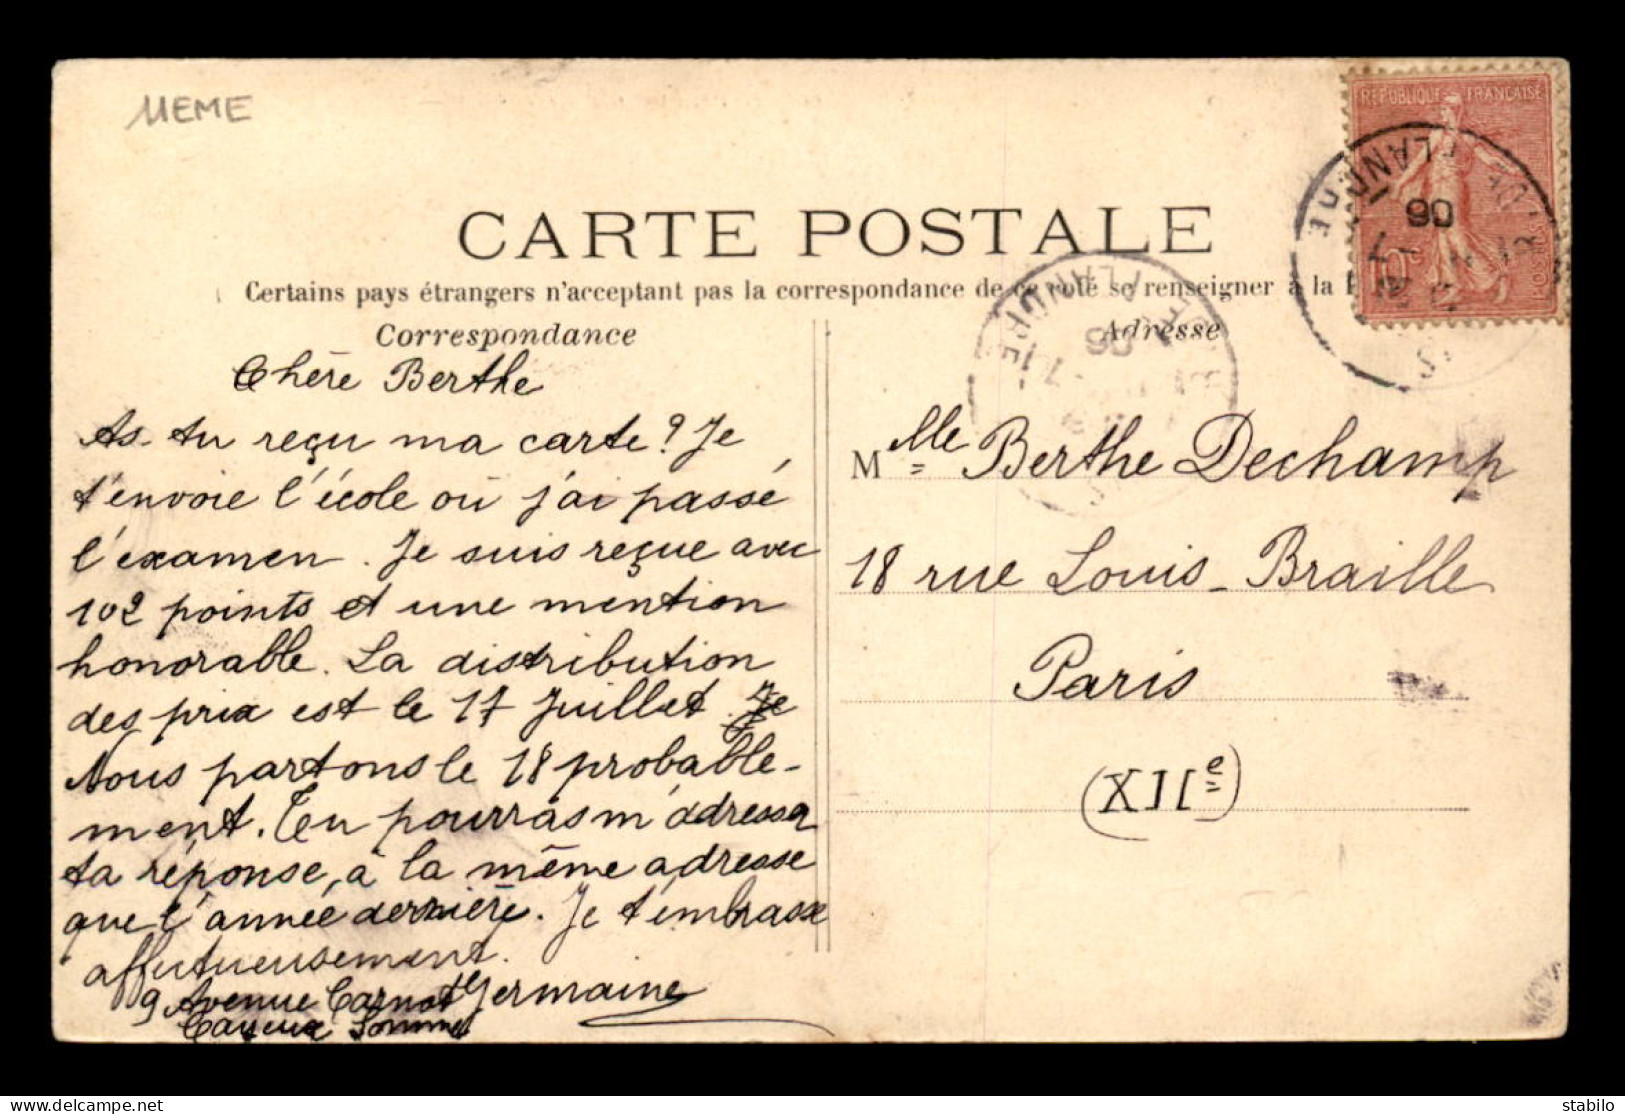 MEME
REPUBLIQUE FRANÇAISE
10c
FLANDRE
06
CARTE POSTALE
Certains pays étrangers n'acceptant pas la correspondance de ce côté se renseigner à la
Correspondance
Adresse
FLANDRE
06
Chère Berthe
As-tu reçu ma carte? Je
t'envoie l'école où j'ai passé
l'examen. Je suis reçue avec
102 points et une mention
honorable. La distribution
des prix est le 17 Juillet. Je
Nous partons le 18 probable-
ment. Tu pourras m'adresser
ta réponse, à la même adresse
que l'année dernière. Je t'embrasse
affectueusement.
Germaine
9 Avenue Carnot
Cayeux Somme
Mlle Berthe Dechamp
18 rue Louis-Braille
Paris
(XIIe)
stabilo